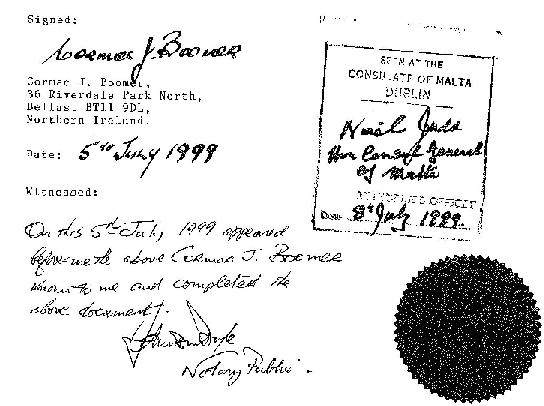 Signed:
Cormac J. Boomer
Cormac J. Boomer,
36 Riverdale Park North,
Belfast BT11 9DL,
Northern Ireland.
Date: 5th July 1999
Witnessed:
On this 5th July, 1999 appeared
before me the above Cormac J. Boomer
known to me and completed the
above document.
Notary Public.
SEEN AT THE
CONSULATE OF MALTA
DUBLIN
Hon Consul General
of Malta
OFFICER
Date 8th July 1999.